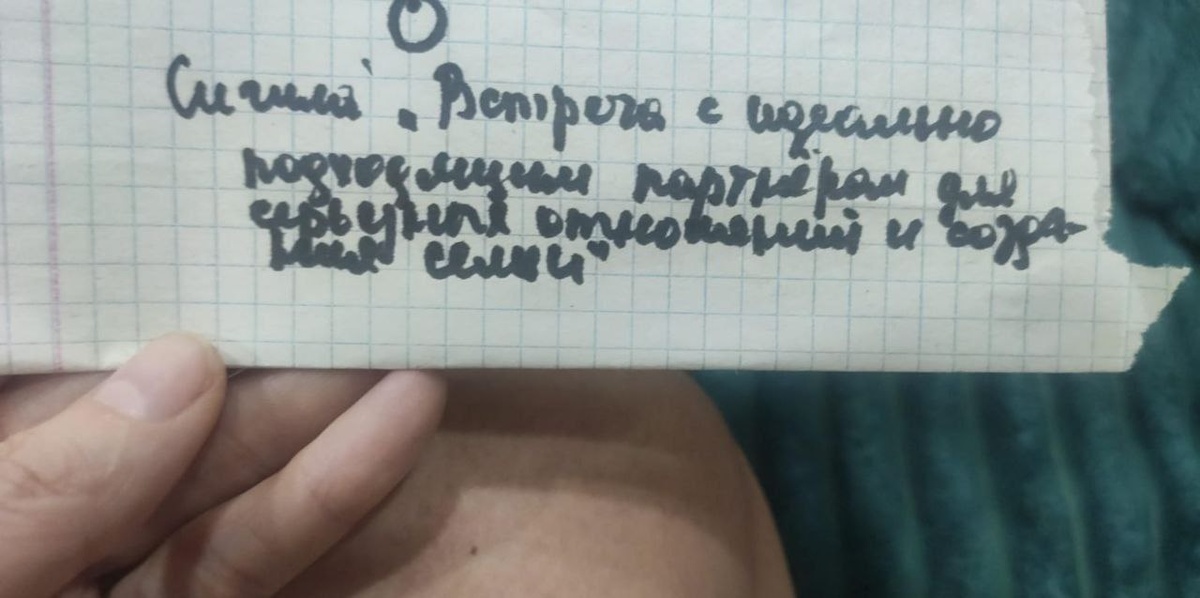 Сигила „Встреча с идеально
подходящим партнёром для
серьезных отношений и созда-
ния семьи"